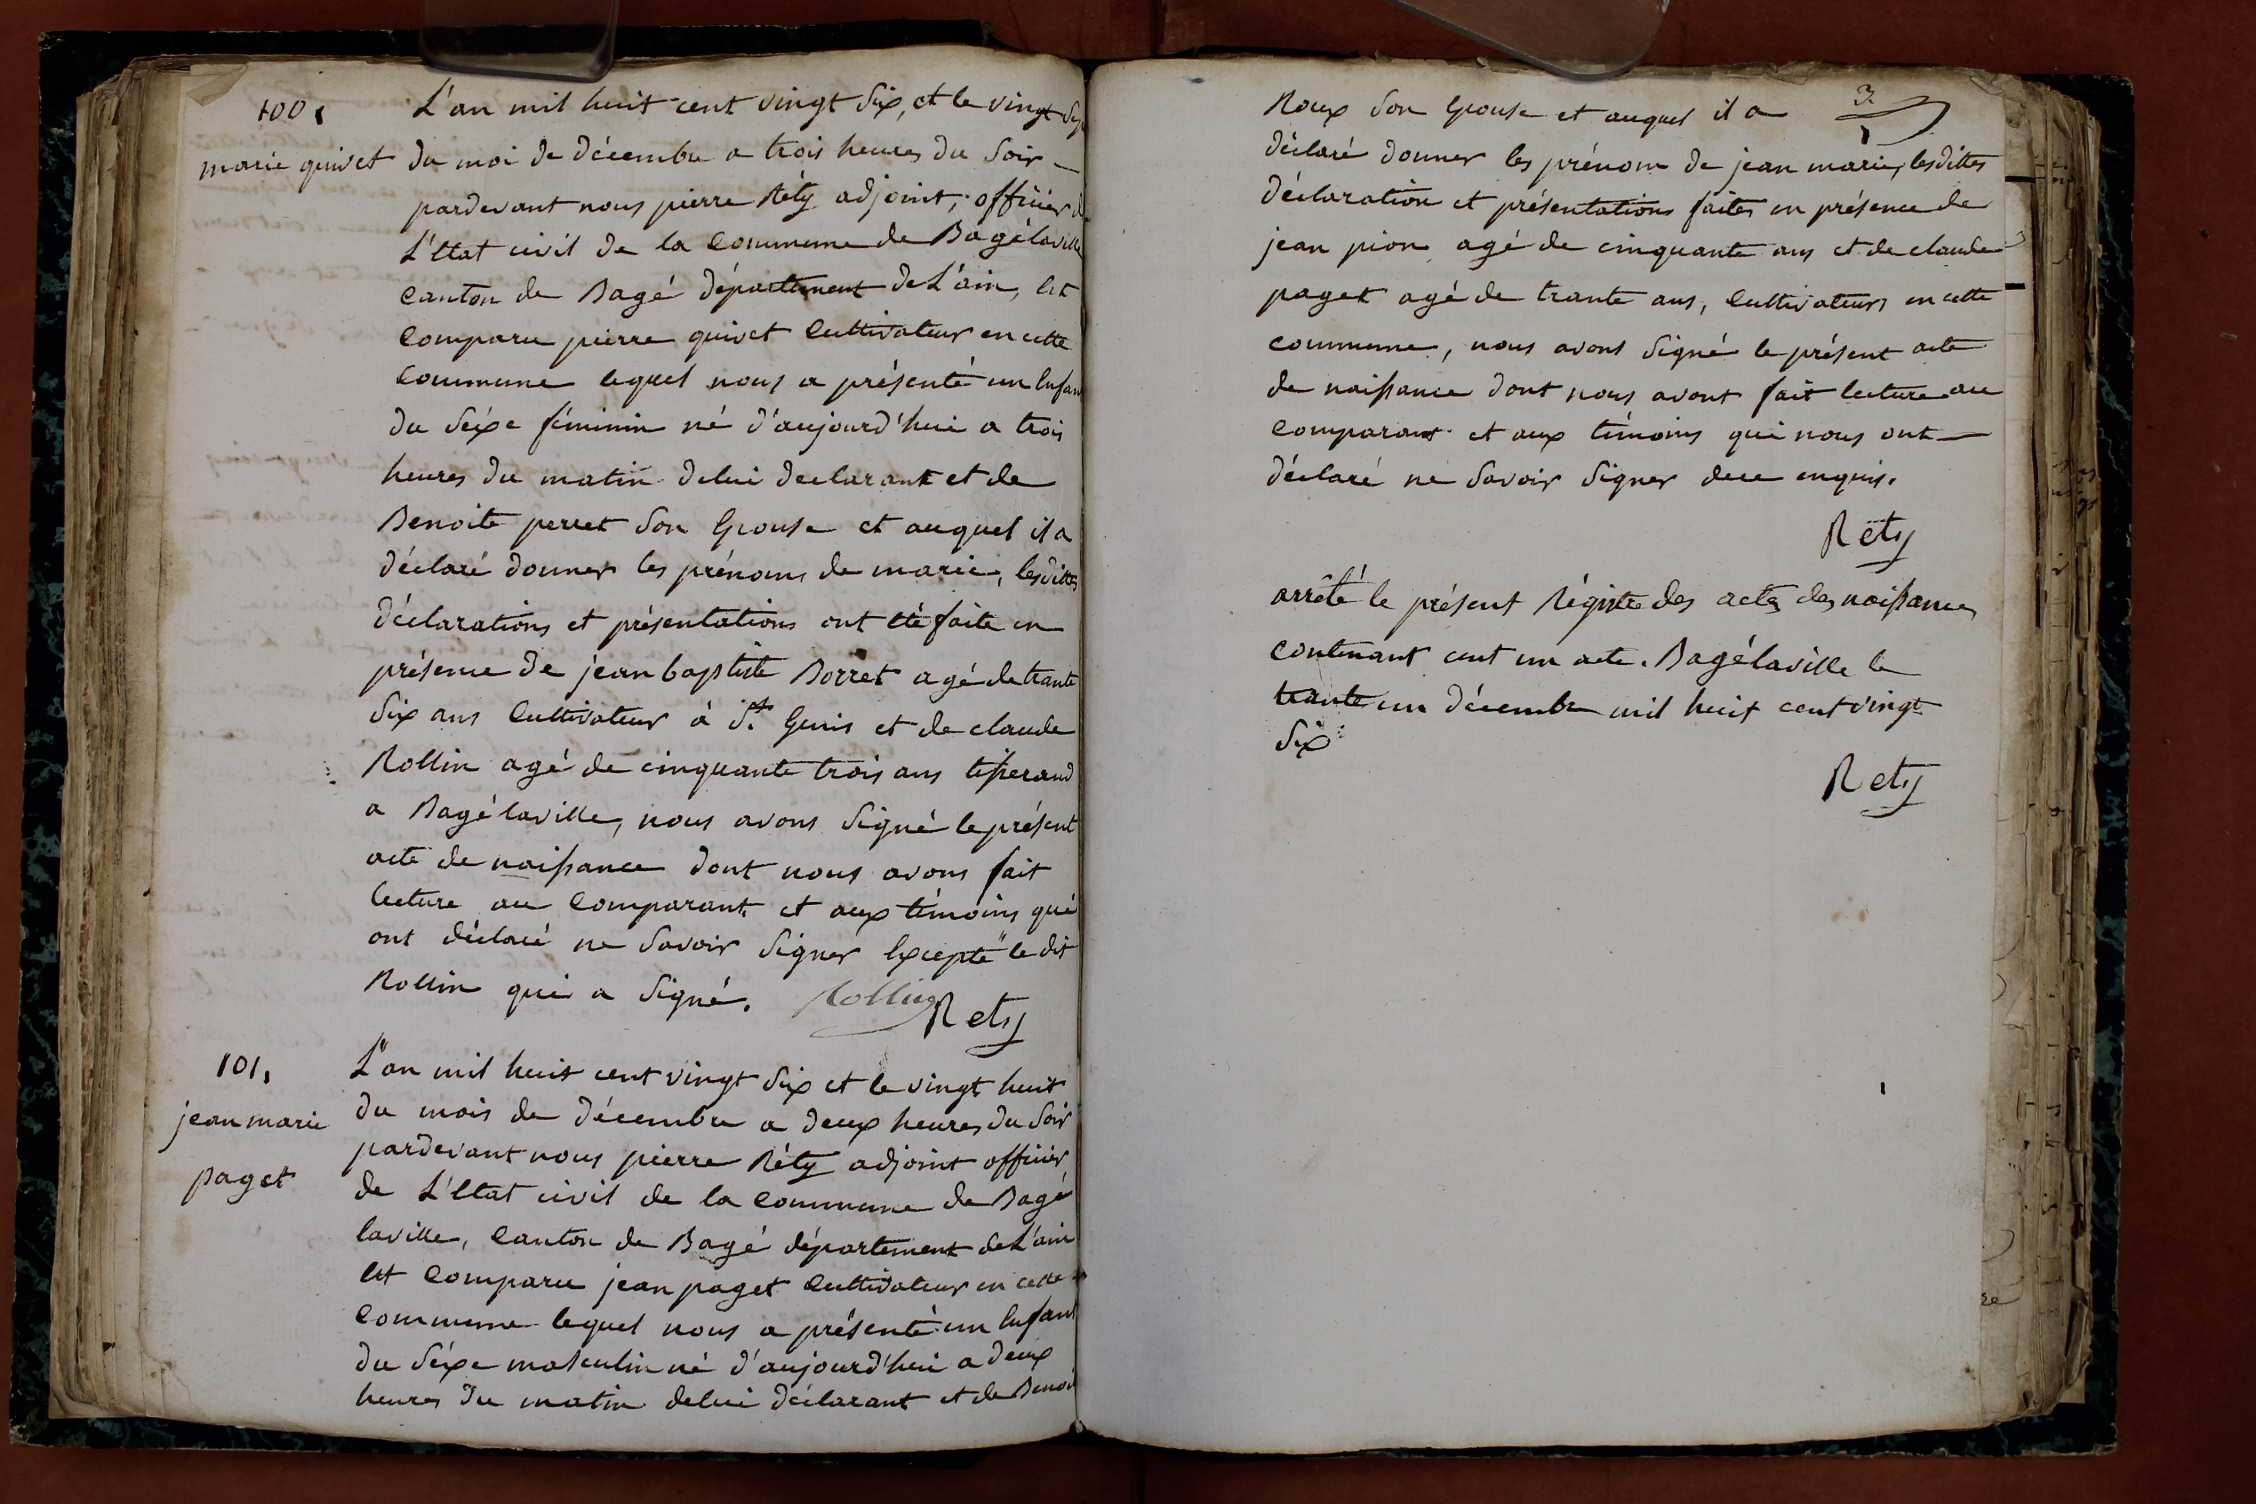 100,
marie quivet
L'an mil huit cent vingt six, et le vingt
du moi de décembre a trois heures du soir
pardevant nous pierre Réty adjoint, officier
L'Etat civil de la commune de Bagélaville
canton de Bagé département de L'ain, Est
comparu pierre quivet cultivateur en cette
commune lequel nous a présenté un Enfan
du séxe féminin né d'aujourd'hui a trois
heures du matin delui declarant et de
Benoite perret son Epouse et auquel il a
déclaré donner les prénoms de marie, lesdittes
déclarations et présentations ont été faite en
présence de jean baptiste Borret agé de trante
six ans cultivateur à St. Genis et de claude
Rollin agé de cinquante trois ans tisserand
a Bagélaville, nous avons signé le présent
acte de naissance dont nous avons fait
lecture au comparant et aux témoins qui
ont déclaré ne savoir signer Excepté le dit
Rollin qui a signé. Rollin
Rety
101,
jean marie
paget
L'an mil huit cent vingt six et le vingt huit
du mois de décembre a deux heures du soir
pardevant nous pierre Réty adjoint officier
de L'Etat civil de la commune de Bagé
laville, canton de Bagé département de L'ain
Est comparu jean paget cultivateur en cette
commune lequel nous a présenté un Enfant
du séxe masculin né d'aujourd'hui a deux
heures du matin delui déclarant et de Benoi
Roux son Epouse et auquel il a
déclaré donner les prénom de jean marie, lesdittes
déclaration et présentations faites en présence de
jean pion agé de cinquante ans et de claude
paget agé de trante ans, cultivateurs en cette
commune, nous avons signé le présent acte
de naissance dont nous avont fait lecture au
comparant et aux témoins qui nous ont
déclaré ne savoir signer dece enquis.
Réty
arrêté le présent Régistre des actes des naissances
contenant cent un acte. Bagélaville le
trante un décembre mil huit cent vingt
six
Rety